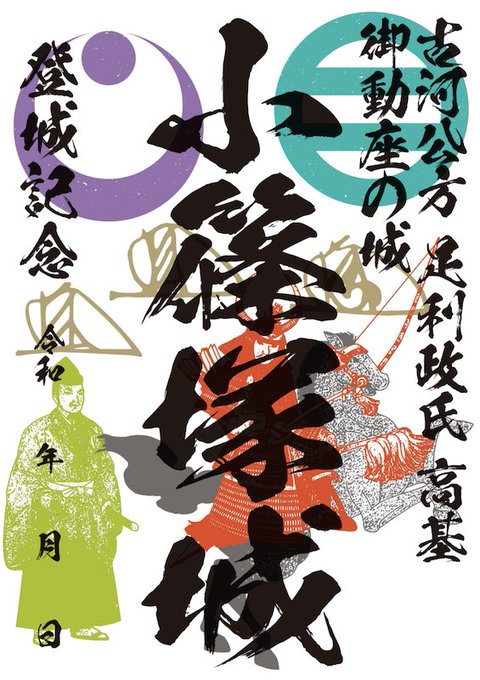 古河公方 足利政氏 高基
御動座の城
小篠塚城
登城記念
令和 年 月 日